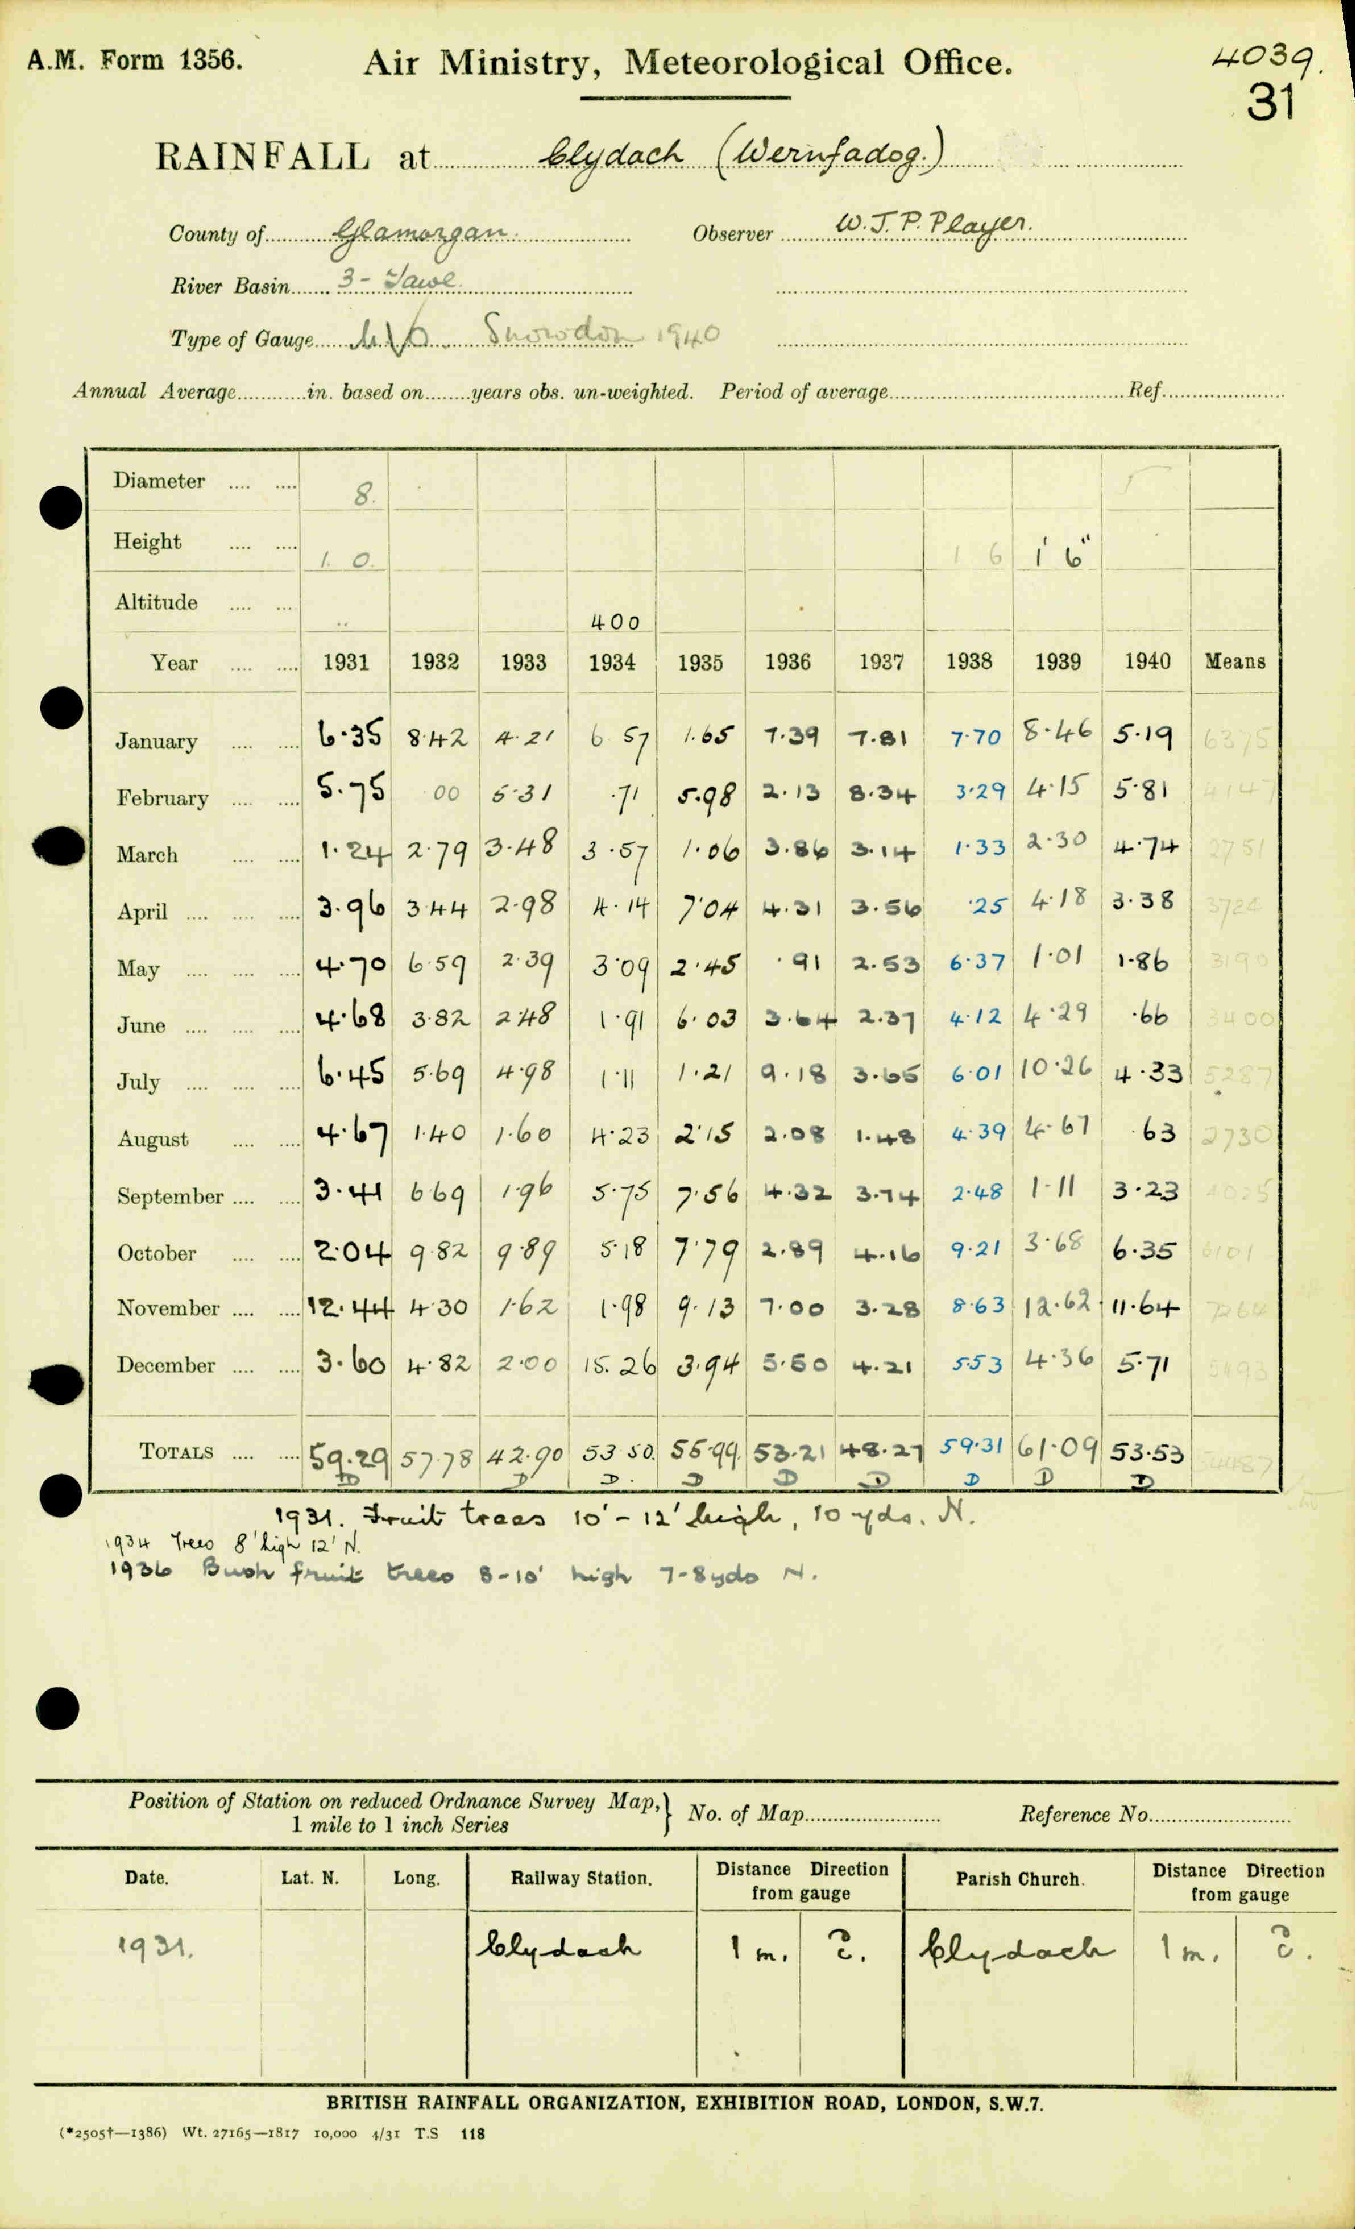 A.M. Form 1356.
Air Ministry, Meteorological Office.
4039.
31
RAINFALL at Clydach (Wernfadog.)
County of Glamorgan. Observer W.J.P. Player.
River Basin 3 - Tawe
Type of Gauge M/O. Snowdon 1940
Annual Average in. based on years obs. un-weighted. Period of average Ref.
Diameter 8.
Height 1. 0. 1 6 1' 6"
Altitude 400
Year 1931 1932 1933 1934 1935 1936 1937 1938 1939 1940 Means
January 6.35 8.42 4.21 6 57 1.65 7.39 7.81 7.70 8.46 5.19 6375
February 5.75 00 5.31 .71 5.98 2.13 8.34 3.29 4.15 5.81 4147
March 1.24 2.79 3.48 3.57 1.06 3.86 3.14 1.33 2.30 4.74 2751
April 3.96 3.44 2.98 4.14 7.04 4.31 3.56 .25 4.18 3.38 3724
May 4.70 6.59 2.39 3.09 2.45 .91 2.53 6.37 1.01 1.86 3190
June 4.68 3.82 2.48 1.91 6.03 3.64 2.37 4.12 4.29 .66 3400
July 6.45 5.69 4.98 1.11 1.21 9.18 3.65 6.01 10.26 4.33 5287
August 4.67 1.40 1.60 4.23 2.15 2.08 1.48 4.39 4.67 .63 2730
September 3.41 6.69 1.96 5.75 7.56 4.32 3.74 2.48 1.11 3.23 4025
October 2.04 9.82 9.89 5.18 7.79 2.89 4.16 9.21 3.68 6.35 6101
November 12.44 4.30 1.62 1.98 9.13 7.00 3.28 8.63 12.62 11.64 7264
December 3.60 4.82 2.00 15.26 3.94 5.50 4.21 5.53 4.36 5.71 5493
TOTALS 59.29 57.78 42.90 53 50. 55.99. 53.21 48.27 59.31 61.09 53.53 54487
D D D. D D D D D D
1931. Fruit trees 10' - 12' high, 10 yds. N.
1934 Trees 8' high 12' N.
1936 Bush fruit trees 8-10' high 7-8 yds N.
Position of Station on reduced Ordnance Survey Map, 1 mile to 1 inch Series } No. of Map Reference No.
Date. Lat. N. Long. Railway Station. Distance Direction from gauge Parish Church. Distance Direction from gauge
1931. Clydach 1 m. Clydach 1 m.
BRITISH RAINFALL ORGANIZATION, EXHIBITION ROAD, LONDON, S.W.7.
(*2505†—1386) Wt. 27165—1817 10,000 4/31 T.S 118